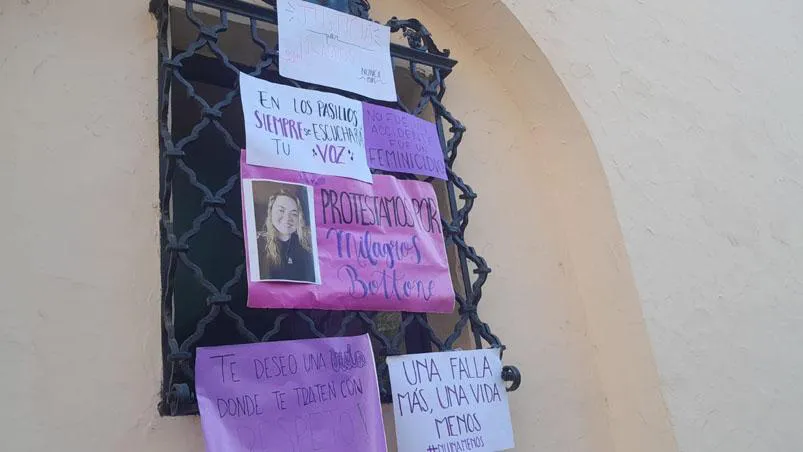 JUSTICIA
por
NUNCA
MÁS
EN LOS PASILLOS
SIEMPRE SE ESCUCHARÁ
TU VOZ
NO FUE UN
ACCIDENTE
FUE UN
FEMINICIDIO
PROTESTAMOS POR
Milagros
Bottone
TE DESEO UNA
DONDE TE TRATEN CON
RESPETO!
UNA FALLA
MÁS, UNA VIDA
MENOS
#NIUNAMENOS